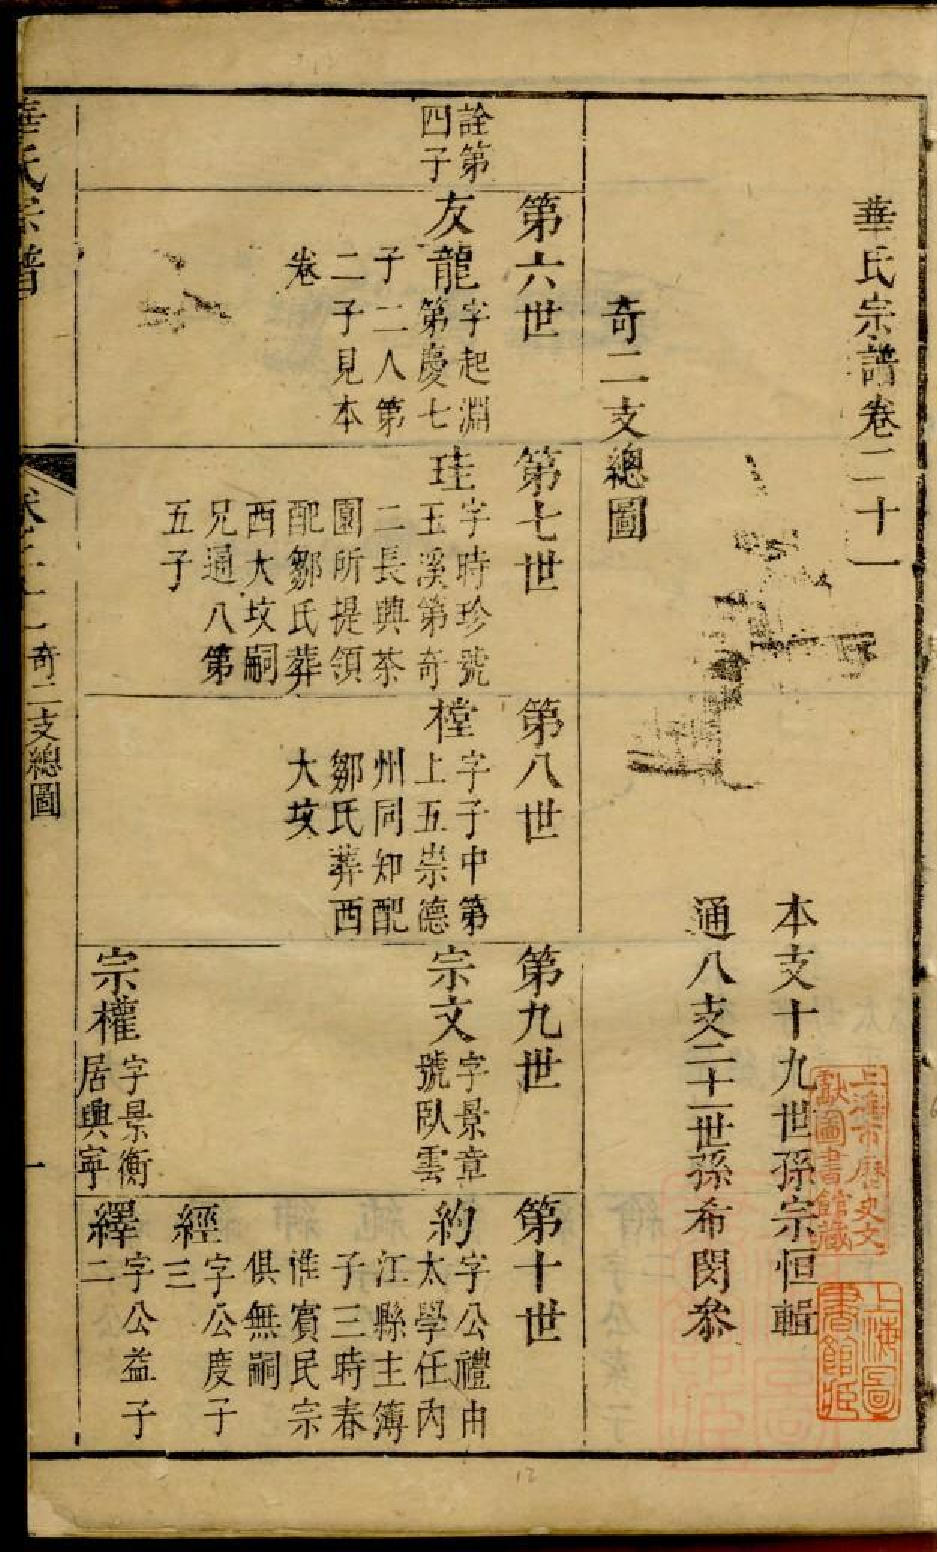 華氏宗譜卷二十一
本支十九世孫宗恒輯
通八支二十一世孫希閔叅
奇二支總圖
詮第
四子
第六世
友龍
字起淵
第慶七
子二人第
二子見本
卷
第七世
珪
字時珍號
玉溪第奇
二長興茶
園所提領
配鄒氏葬
西大坟嗣
兄通八第
五子
第八世
樘
字子中第
上五崇德
州同知配
鄒氏葬西
大坟
第九世
宗文
字景章
號臥雲
宗權
字景衡
居興寧
第十世
約
字公禮由
太學任內
江縣主簿
子三時春
惟賓民宗
俱無嗣
經
字公度子
三
繹
字公益子
二
華氏宗譜
奇二支總圖
一
上海市歷史文
獻圖書館藏
上海圖
書館藏
12